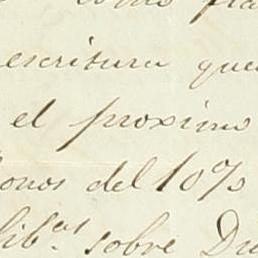 como
escritura que
el proximo
onos del 10%
lib.as sobre